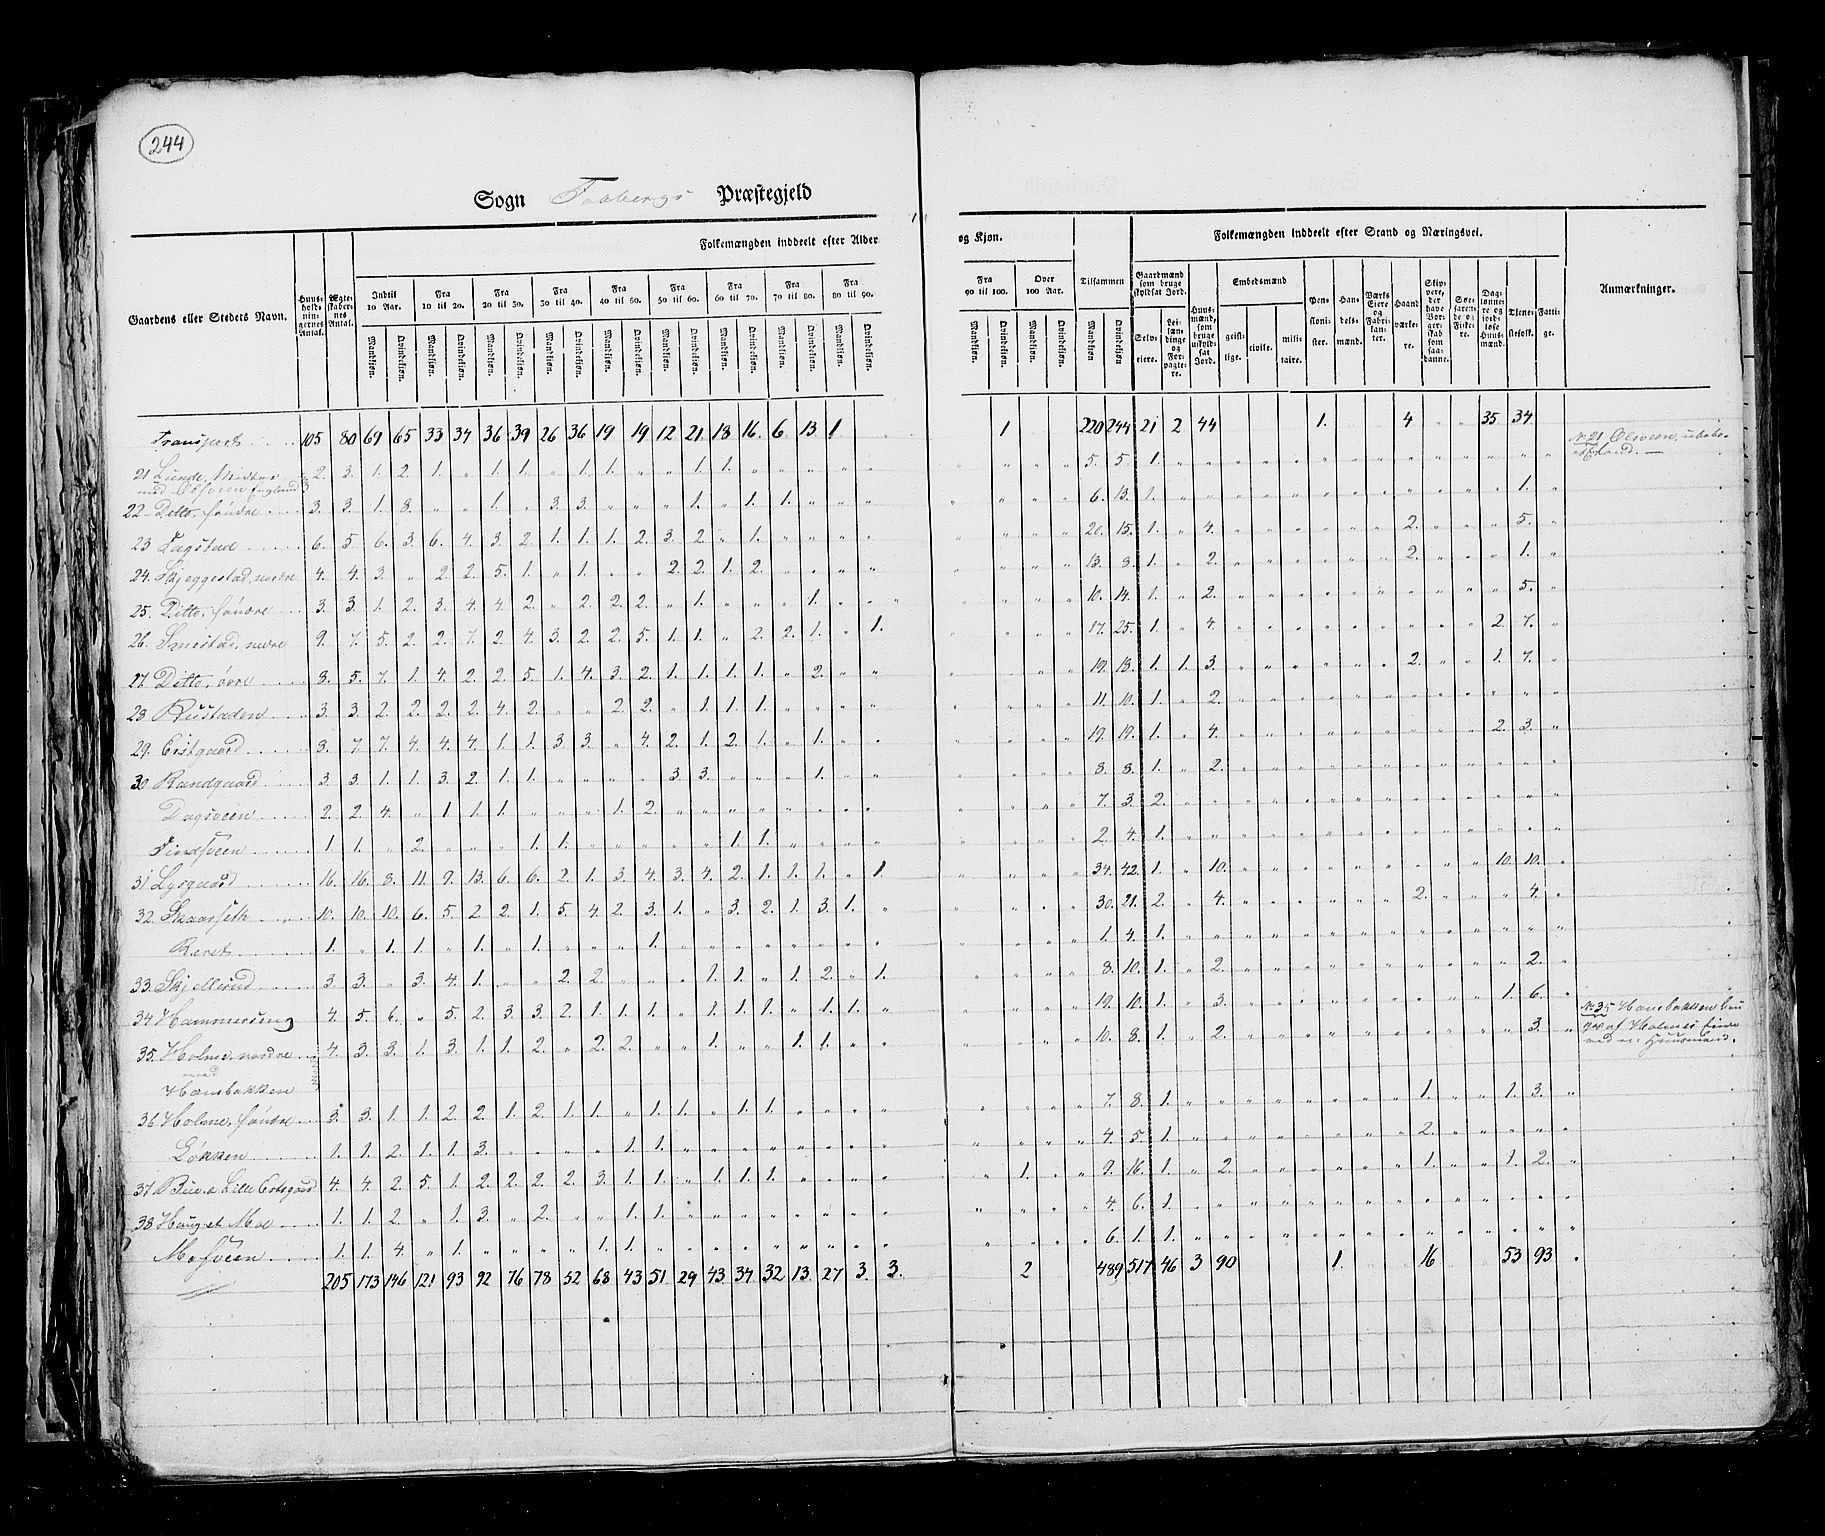 244
Sogn Faabergs Præstegjeld
Folkemængden inddeelt efter Alder og Kjøn.
Folkemængden inddeelt efter Stand og Næringsvei.
Gaardens eller Stedets Navn.
Huus-holdnin-gernes Antal.
Ægte-skaber-nes Antal.
Indtil 10 Aar.
Fra 10 til 20.
Fra 20 til 30.
Fra 30 til 40.
Fra 40 til 50.
Fra 50 til 60.
Fra 60 til 70.
Fra 70 til 80.
Fra 80 til 90.
Fra 90 til 100.
Over 100 Aar.
Tilsammen
Mandkjøn. Qvindekjøn.
Gaardmænd som bruge skyldsat Jord.
Selv-eiere.
Lei-lændinge og For-pagte-re.
Huus-mænd, som bruge uskyld-sat Jord.
Embedsmænd
geist-lige. civile. mili-taire.
Pen-sioni-ster.
Han-dels-mænd.
Værks Eiere og Fabri-kan-ter.
Haand værke-re.
Skip-pere, der have Bor-ger-skab som saa-danne.
Søe-faren-de og Fiske-re.
Dag-lønne-re og jord-løse Huus-mænd.
Tiene-stefolk.
Fatti-ge.
Anmærkninger.
Transport 105 80 69 65 33 34 36 39 26 36 19 19 12 21 18 16. 6 13 1 1 220 244 21 2 44 1. 4 35 34
21 Lunde, Midtre med Olsveen Englund 2. 3. 1. 2 1. " 1. 1. " 1. 1. " " 1. 1. 5. 5. 1.
No 21 Olsveen, ubebo-
22 Ditto, søndre 3. 3. 1 8. " " 1. " 3. 3. " " " 1. " 1. 1. 6. 13. 1. 1.
23 Fagstad 6. 5. 6. 3. 6. 4. 3. 2. 1. 1. 1. 2 3. 2. " 1. 20. 15. 1. " 4. 2. 5.
24. Skjeggestad, nordre 4. 4. 3. " 2. 2. 5. 1. " 1. " " 2. 2. 1. 2. 13. 8. 1. " 2. 2. 1.
25. Ditto, søndre 3. 3. 1. 2. 3. 4. 4. 2. " 2. 2. 2. " 1. " " " 1. 10. 14. 1. " 2. 5.
26. Smestad, nedre 9. 7. 5. 2. 2. 7. 2. 4. 3. 2. 2. 5. 1. 1. " 2. 2. 1. " 1. 17. 25. 1. " 4. 2. 7.
27. Ditto, øvre 8. 5. 7. 1. 4. 2. 2. 5. 1. 4. 3. 2. 1. 1. 1. 1. " 2. 19. 18. 1. 1. 3. 2. 1. 7.
28 Rustaden 3. 3. 2. 2. 2. 2. 4. 2. " " 2. 2. " 1. 1. 1. 11. 10. 1. " 2.
29. Erstgaard 8. 7 7. 4. 4. 4. 1. 1. 3. 3. " 4. 2. 1. 2. 1. " 1. 19. 19. 1. " 4. 2. 3.
30 Randgaard 3. 3. 1. 1. 3. 2. 1. 1. " " " " 3. 3. " " " 1. 8. 8. 1. " 2.
Dagsveen 2. 2. 4. " 1 1. 1. " " " 1. 2. 7. 3. 2.
Findsveen 1 1. " 2. " " " 1. 1. " " " " " 1. 1. 2. 4. 1.
31 Lysgaard 16. 16. 8. 11. 9. 13. 6. 6. 2. 1. 3. 4. 3. 4. 2. 1. 1. 1. " 1. 34. 42. 1. " 10. 10. 10.
32. Skaarseth 10. 10. 10. 6. 5. 2 2. 1. 5. 4. 2. 3. 1. " 3. 2. 1. 3. 1. 30. 21. 2. " 4. 2. 4.
1. " 1. 1. " 1. " 1. " " " 1. 1. 4. 1.
33. Skjellerud 3. 3. " 3. 4. 1. " " 2. 2. " " " 1. 1. " 1. 2. " 1. 8. 10. 1. " 2. 2.
34 Hammerseng 4. 5. 6. " 5. 2. 3. 3. 2. 1. 1. 1. " 1. 1. 1. " 1. 1. 19. 10. 1. " 3. 1. 6.
35. Holme, nordre med 4. 3. 3. 1. 3. 1. 1. 2. " 2. 2. " " 1. " " 1. 1. 10. 8. 1. " 2. 3.
No 35 Hansbakken bru
ges af Holmes Eiere
ved en Huusmand.
Hansbakken
36 Holme, søndre 3. 3. 1. 1. 2. 2. 1. 2. 1. 1. " 1. 1. " 1. 1. 7. 8. 1. 1. 1. 3.
Løkken 1. 1. 2. 1. 1. 3. " " " " 1. 1. 4. 5. 1. 2.
37 Bue, a Lille Erstgaard 4. 4. 2. 5. 1. 2. 2. 2. 2. 3. 1. 1. " 1. 1. 1. 1. 9. 16. 1. " 2. 1. 1. 2.
38 Haug et Moe 1. 1. 2. " 1. 3. " 2. " " 1. 1. 4. 6. 1.
Mosveen 1. 1. 4. " 1. " " " " 1. 1. 6. 1. 1.
205 173 146 121 93 92 76 78 52 68 43 51 29 43 34 32 13 27 3. 3. 2 489 517 46 3 90 1 16 53 93